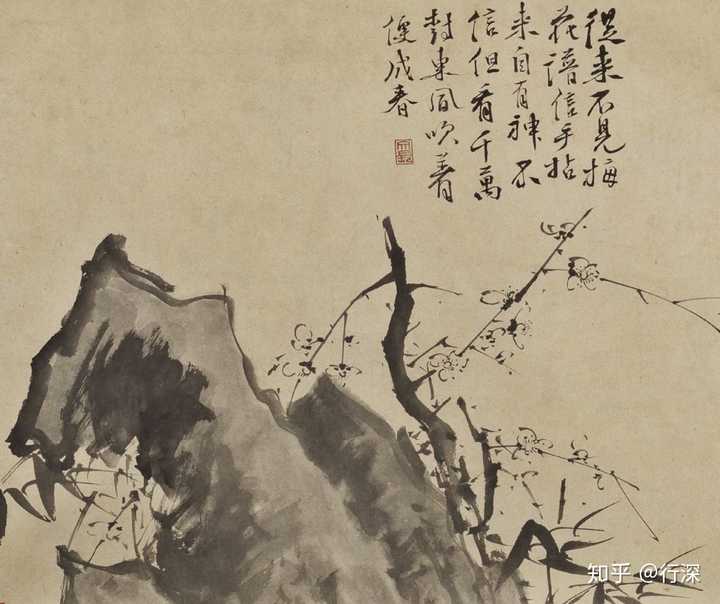 從来不見梅
花譜信手拈
来自有神不
信但看千萬
樹東風吹着
便成春
知乎 @行深